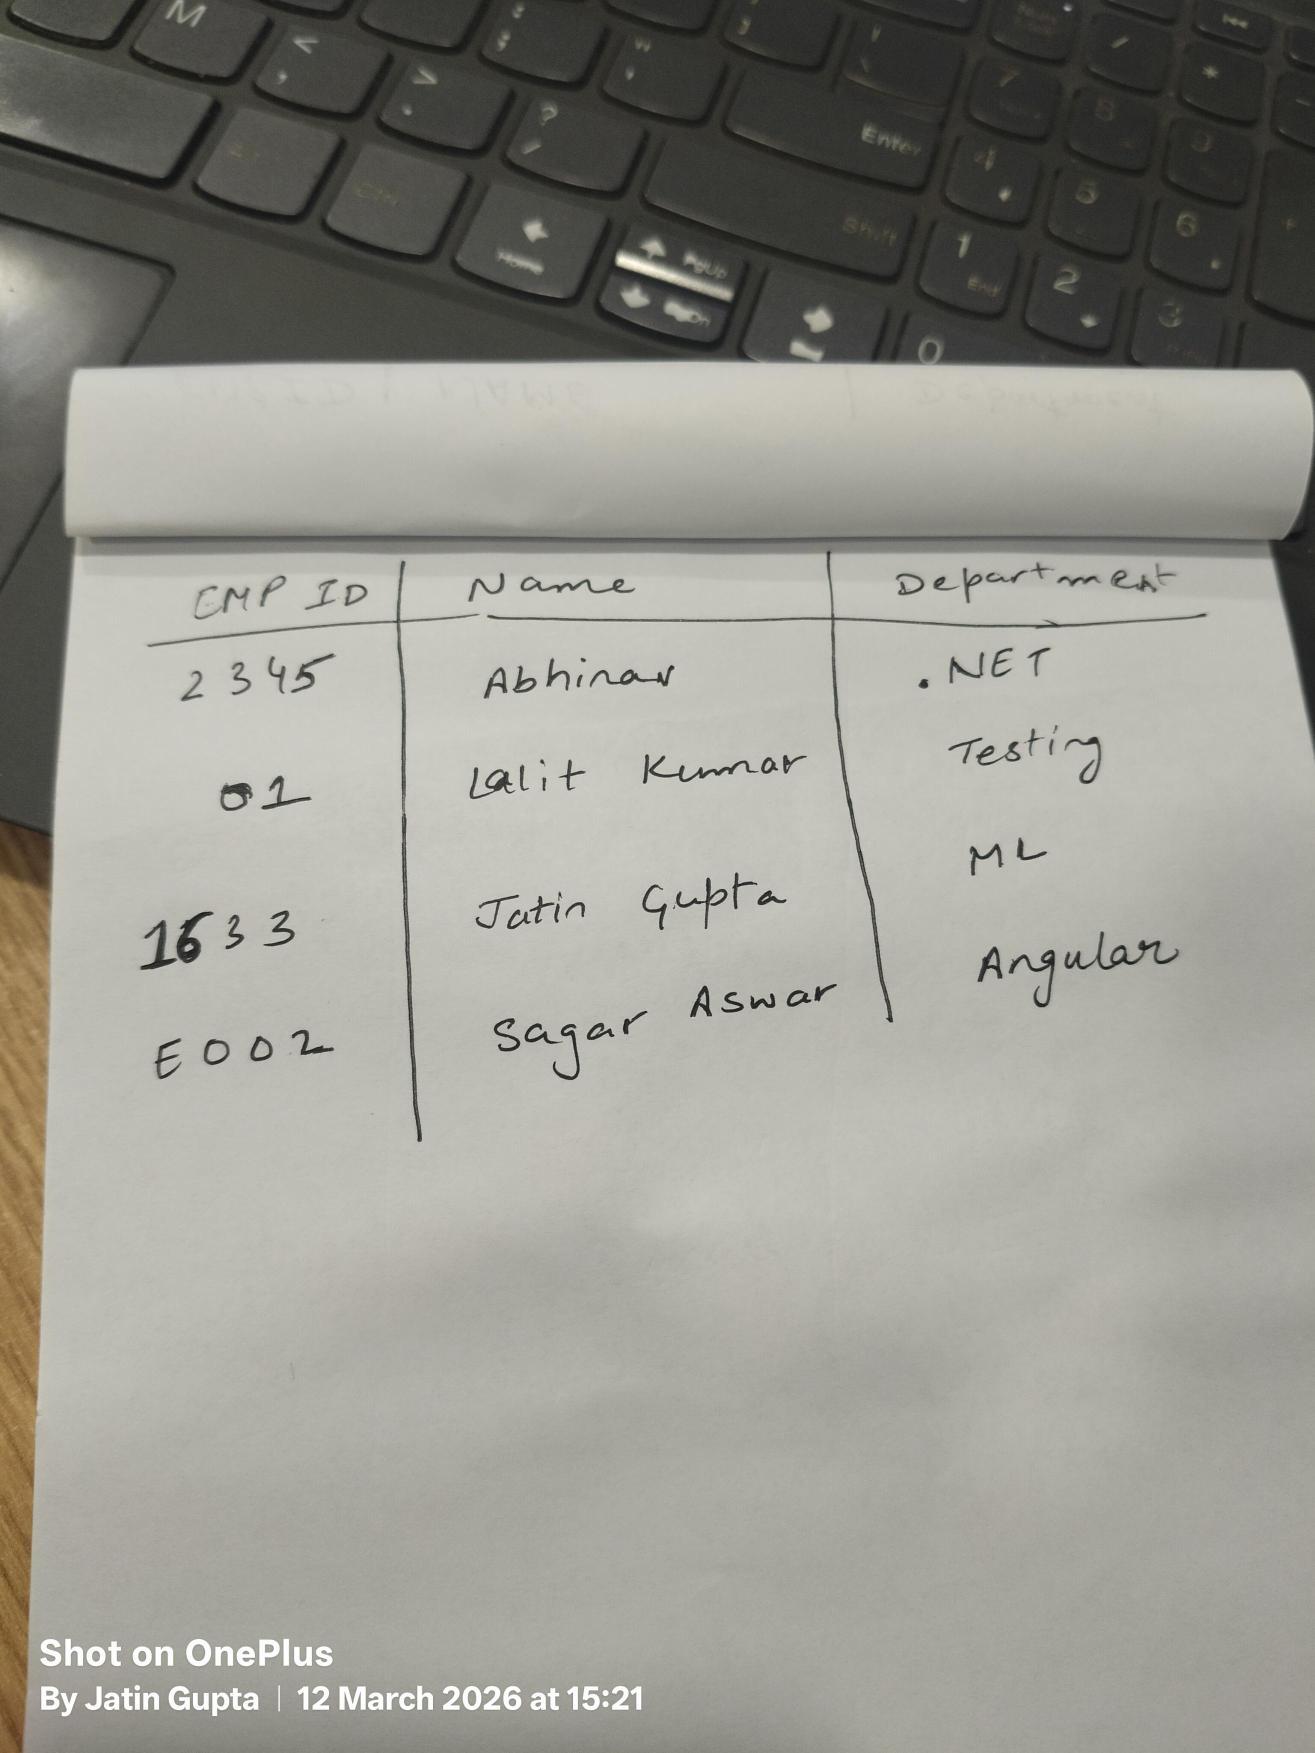 M
Enter
Shift
Home
PgUp
1 End
2
3
4
5
6
7
8
9
0
EMP ID Name Department
2345 Abhinav .NET
01 Lalit Kumar Testing
1633 Jatin Gupta ML
E002 Sagar Aswar Angular
Shot on OnePlus
By Jatin Gupta | 12 March 2026 at 15:21